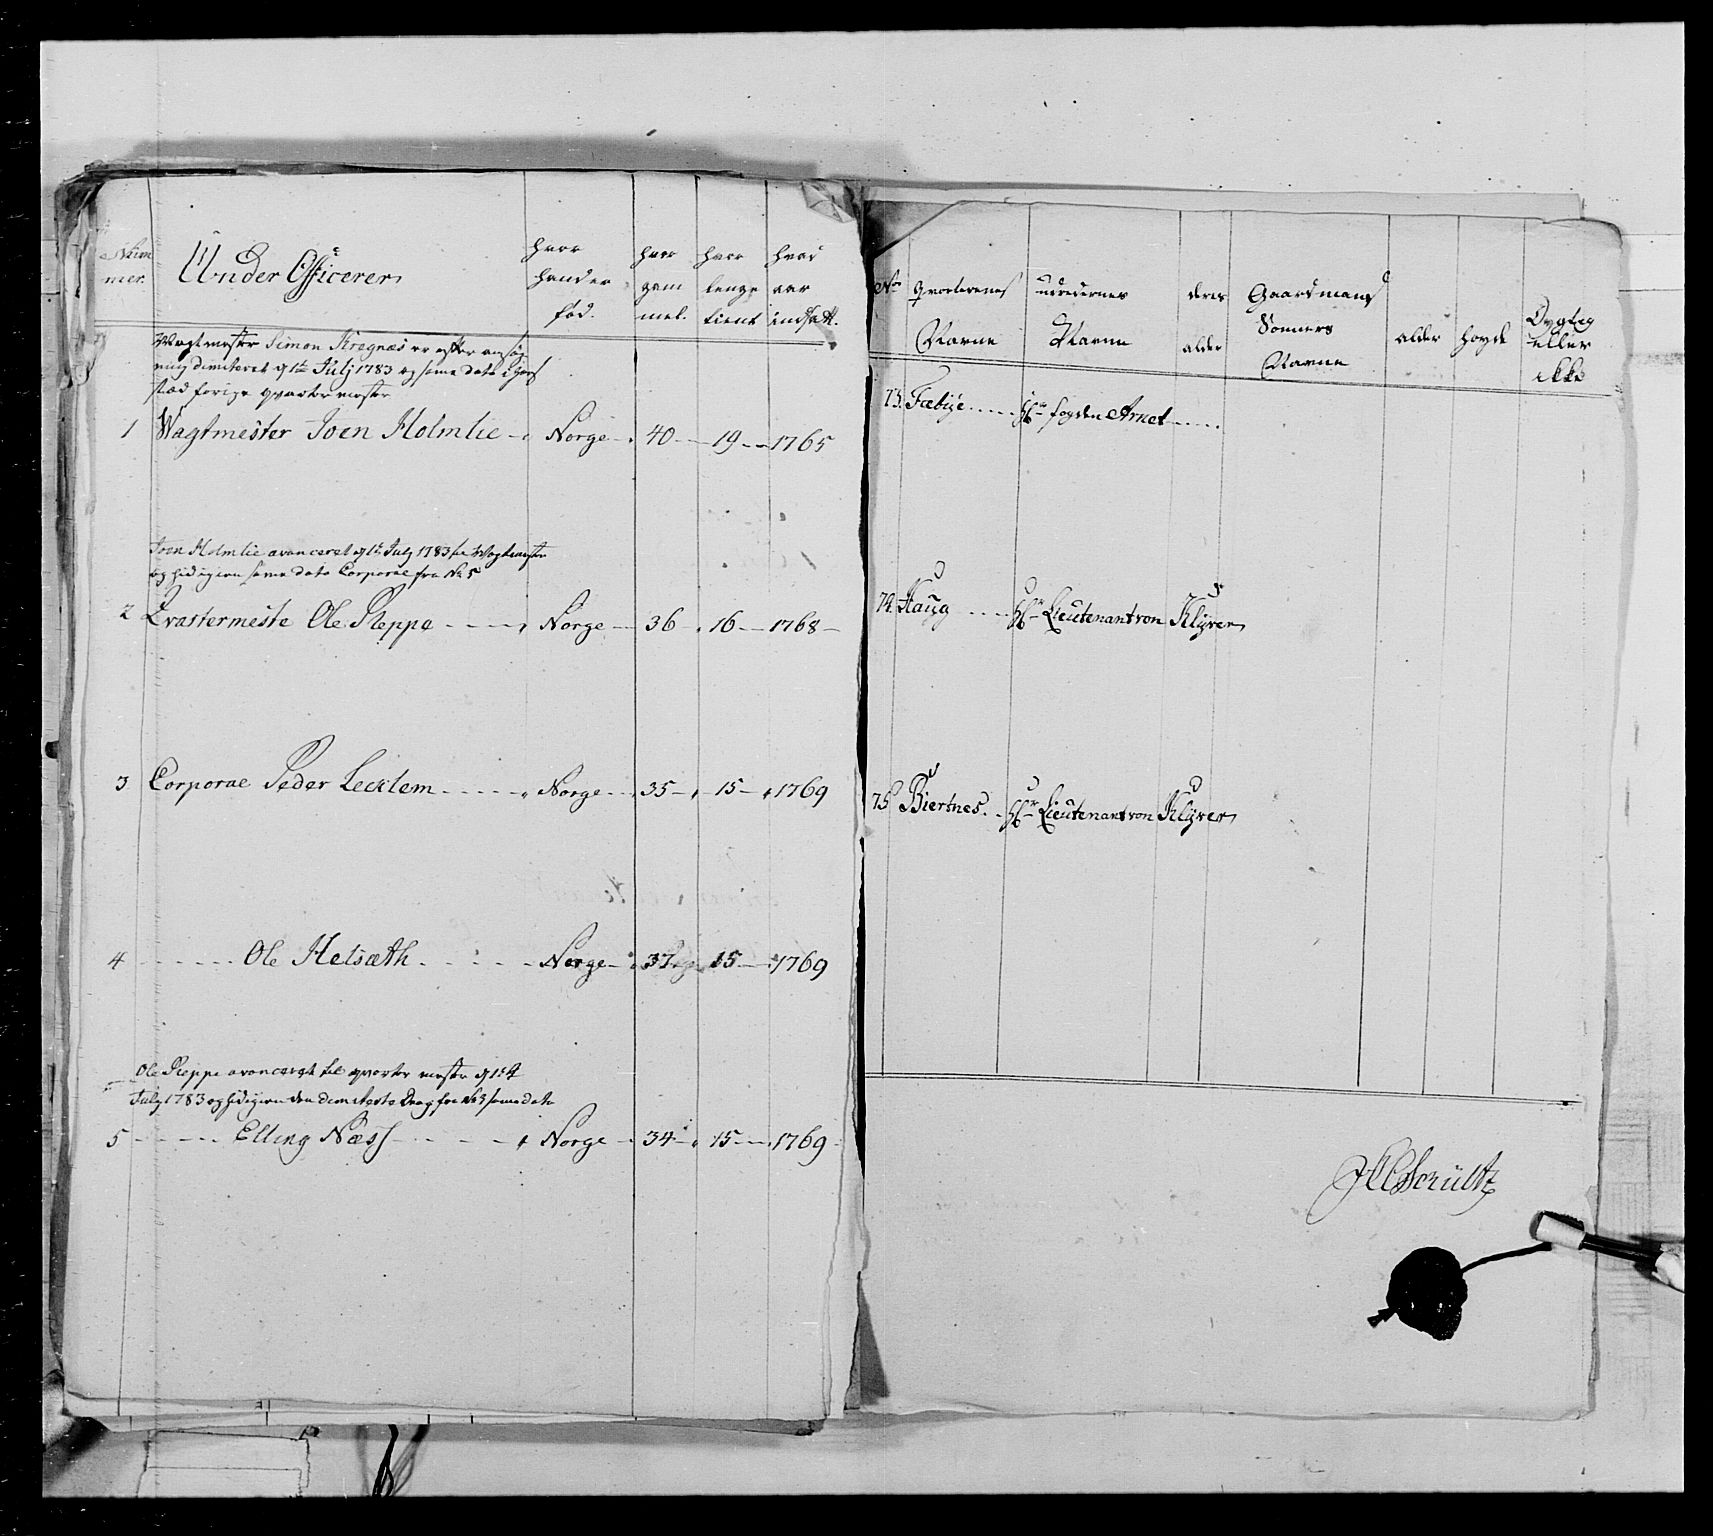 Num
mer.
Under Officerer
hvor
hand er
fød.
hvor
gam
mel.
hvor
lenge
tient
hvad
aar
indsatt.
Wagtmester Simon Kregnæs er efter ansøg
ning dimiteret d 1te Julj 1783 og samme dato i hans
stæd forige qvartermester
1 Wagtmester Joen Holmlie Norge 40 19 1765
Joen Holmlie avanceret d 1te Julj 1783 til Wagtmester
og hid igien samme dato Corporal fra No 5
2 Qvartermeste Ole Reppe Norge 36 16 1768
3 Corporal Peder Lecklem Norge 35 15 1769
4 Ole Helsæth Norge 37 15 1769
Ole Reppe avanceret til qvarter mester d 1st
July 1783 og hid igien den dimiterte Drag fra No 3 samme dato
5 Elling Næss Norge 34 15 1769
No
Qvarterenes
Navne
udredernes
Navne
deres
alder
Gaardmans
Sønners
Navne
alder
høyde
Dygtig
eller
ikke
73. Fæbye Hr fogden Arnet
74. Haug Hr Lieutenant von Klyver
75 Biertnes Hr Lieutenant von Klyver